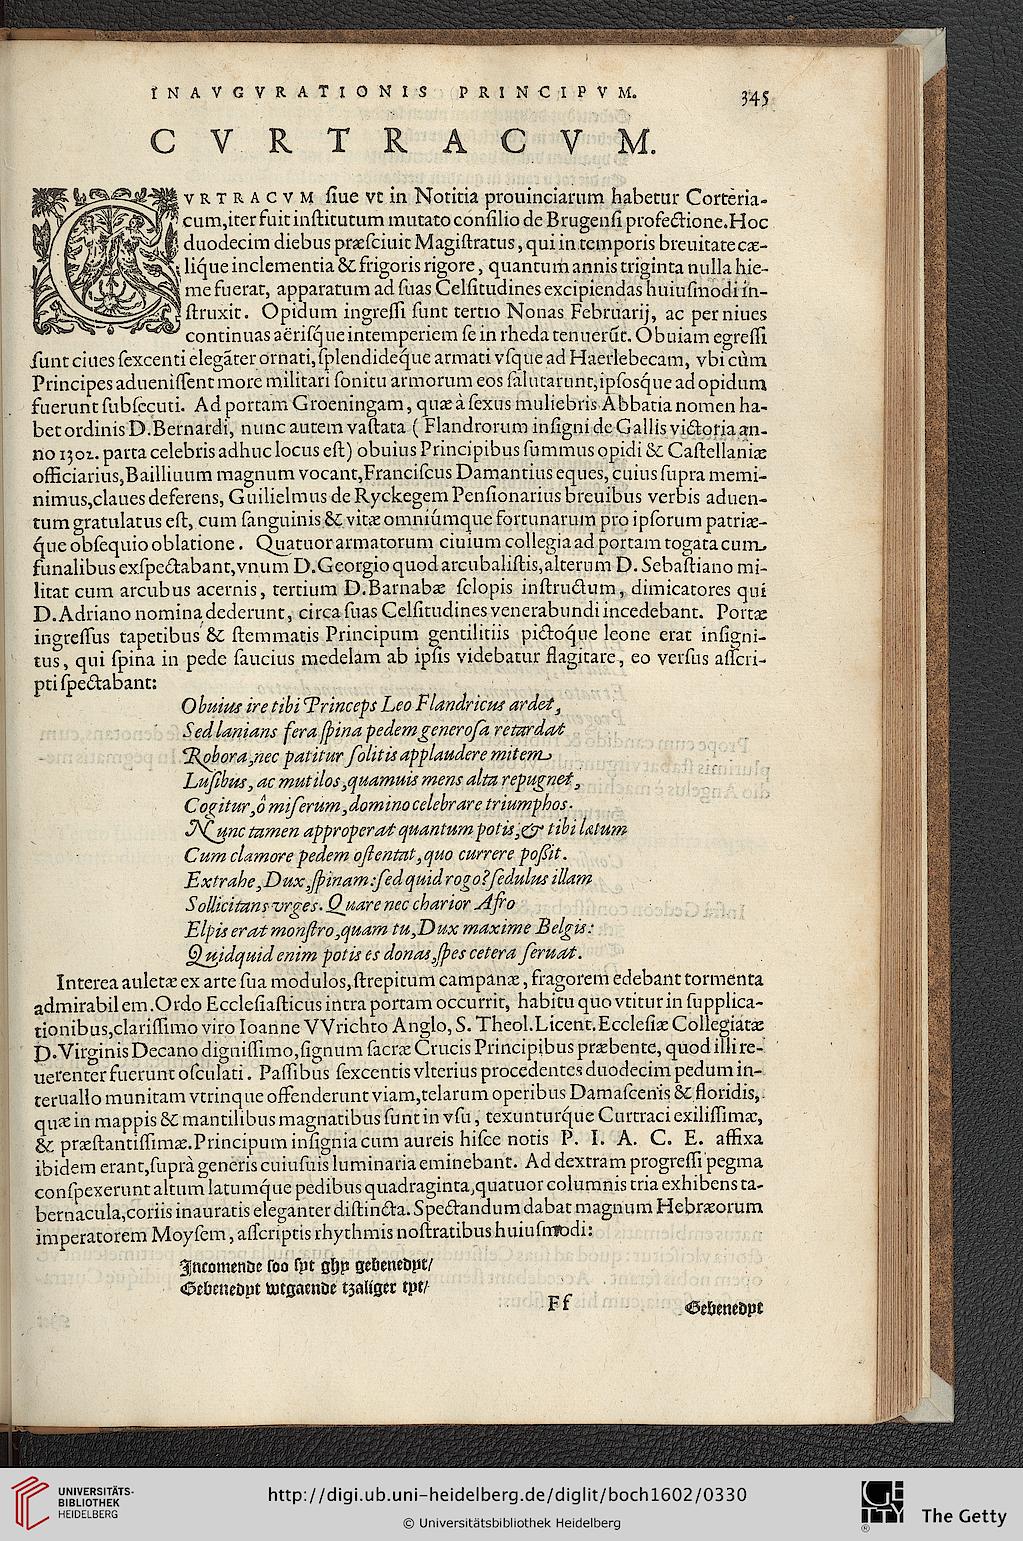 INAVGVRATIONIS PRINCIPVM. 345
CVRTRACVM.
CVRTRACVM siue vt in Notitia prouinciarum habetur Corteria-
cum,iter fuit institutum mutato consilio de Brugensi profectione.Hoc
duodecim diebus præsciuit Magistratus, qui in temporis breuitate cæ-
liq́ue inclementia & frigoris rigore, quantum annis triginta nulla hie-
me fuerat, apparatum ad suas Celsitudines excipiendas huiusmodi in-
struxit. Opidum ingressi sunt tertio Nonas Februarij, ac per niues
continuas aërisq́ue intemperiem se in rheda tenuerũt. Obuiam egressi
sunt ciues sexcenti elegãter ornati,splendideq́ue armati vsque ad Haerlebecam, vbi cùm
Principes aduenissent more militari sonitu armorum eos salutarunt,ipsosq́ue ad opidum
fuerunt subsecuti. Ad portam Groeningam, quæ à sexus muliebris Abbatia nomen ha-
bet ordinis D.Bernardi, nunc autem vastata ( Flandrorum insigni de Gallis victoria an-
no 1302. parta celebris adhuc locus est) obuius Principibus summus opidi & Castellaniæ
officiarius,Bailliuum magnum vocant,Franciscus Damantius eques, cuius supra memi-
nimus,claues deferens, Guilielmus de Ryckegem Pensionarius breuibus verbis aduen-
tum gratulatus est, cum sanguinis & vitæ omniúmque fortunarum pro ipsorum patriæ-
q́ue obsequio oblatione. Quatuor armatorum ciuium collegia ad portam togata cum
funalibus exspectabant,vnum D.Georgio quod arcubalistis,alterum D. Sebastiano mi-
litat cum arcubus acernis, tertium D.Barnabæ sclopis instructum, dimicatores qui
D.Adriano nomina dederunt, circa suas Celsitudines venerabundi incedebant. Portæ
ingressus tapetibus & stemmatis Principum gentilitiis pictoq́ue leone erat insigni-
tus, qui spina in pede saucius medelam ab ipsis videbatur flagitare, eo versus asscri-
pti spectabant:
Obuius ire tibi Princeps Leo Flandricus ardet,
Sed lanians fera spina pedem generosa retardat
Robora,nec patitur solitis applaudere mitem
Lusibus, ac mutilos,quamuis mens alta repugnet,
Cogitur,ô miserum,domino celebrare triumphos.
Nunc tamen approperat quantum potis,& tibi lætum
Cum clamore pedem ostentat,quo currere poßit.
Extrahe,Dux,spinam:sed quid rogo?sedulus illam
Sollicitans vrges. Quare nec charior Afro
Elpis erat monstro,quam tu,Dux maxime Belgis:
Quidquid enim potis es donas,spes cetera seruat.
Interea auletæ ex arte sua modulos,strepitum campanæ, fragorem edebant tormenta
admirabilem.Ordo Ecclesiasticus intra portam occurrit, habitu quo vtitur in supplica-
tionibus,clarissimo viro Ioanne VVrichto Anglo, S. Theol.Licent.Ecclesiæ Collegiatæ
D.Virginis Decano dignissimo,signum sacræ Crucis Principibus præbente, quod illi re-
uerenter fuerunt osculati. Passibus sexcentis vlterius procedentes duodecim pedum in-
teruallo munitam vtrinque offenderunt viam,telarum operibus Damascenis & floridis,
quæ in mappis & mantilibus magnatibus sunt in vsu, texunturq́ue Curtraci exilissimæ,
& præstantissimæ.Principum insignia cum aureis hisce notis P. I. A. C. E. affixa
ibidem erant,suprà generis cuiusuis luminaria eminebant. Ad dextram progressi pegma
conspexerunt altum latumq́ue pedibus quadraginta,quatuor columnis tria exhibens ta-
bernacula,coriis inauratis eleganter distincta. Spectandum dabat magnum Hebræorum
imperatorem Moysem, asscriptis rhythmis nostratibus huiusmodi:
Incomende soo syt ghy gebenedyt/
Gebenedyt wtgaende tzaliger tyt/
Ff Gebenedyt
UNIVERSITÄTS-
BIBLIOTHEK
HEIDELBERG
http://digi.ub.uni-heidelberg.de/diglit/boch1602/0330
© Universitätsbibliothek Heidelberg
GETTY
®
The Getty